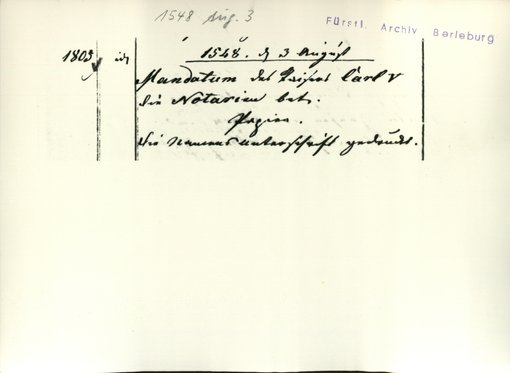 1548 Aug. 3
Fürstl. Archiv Berleburg
1803
1548. d 3 August
Mandatum des Kaisers Carl V
die Notarien betr.
Papier.
die Namens unterschrift gedruckt.